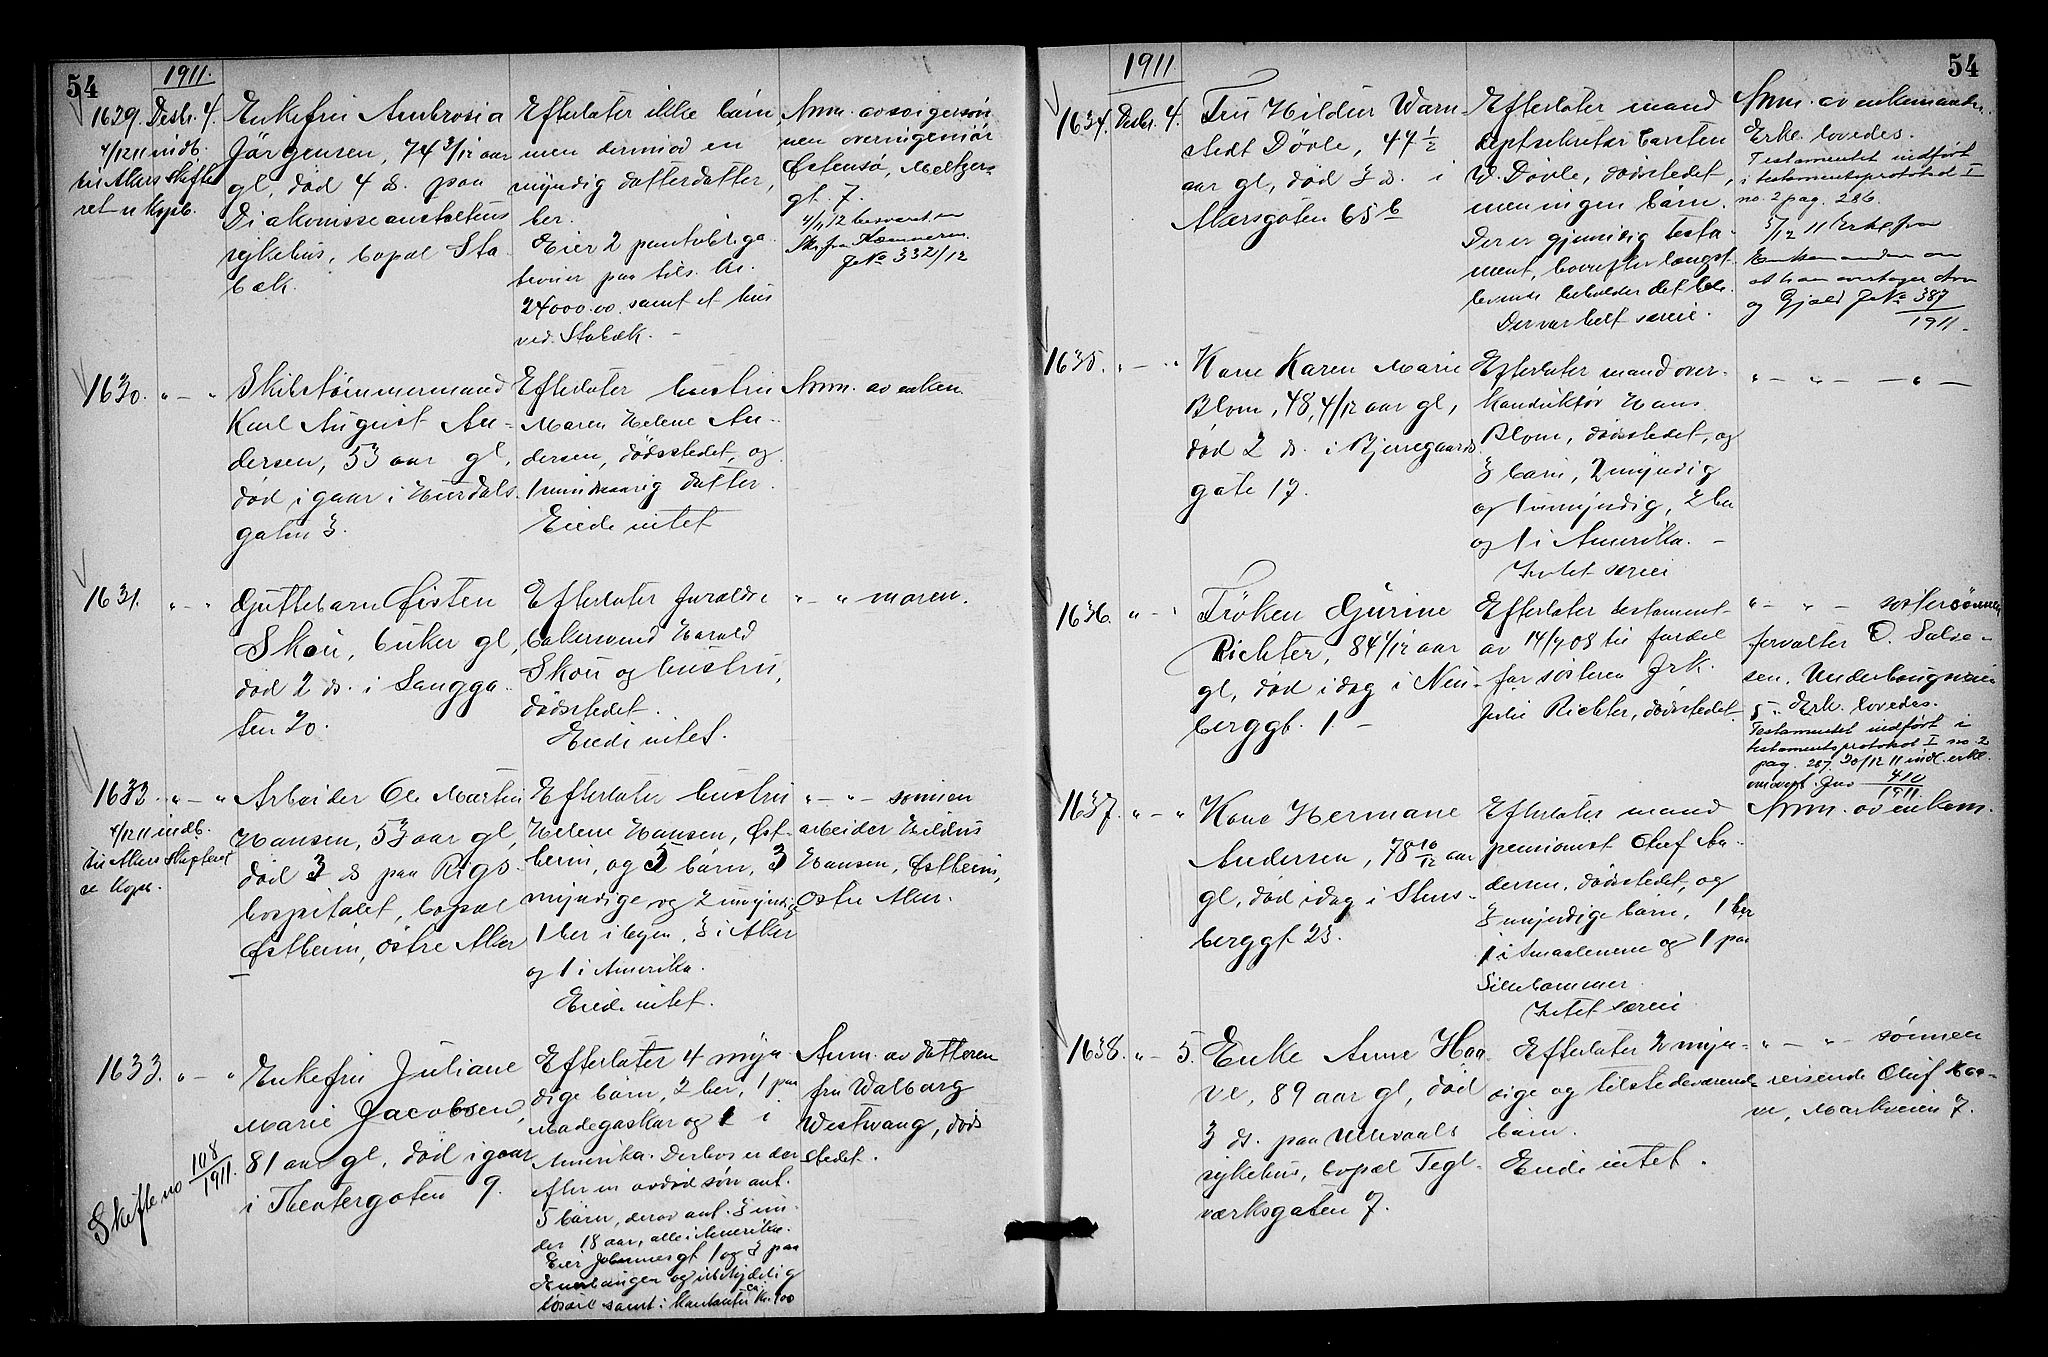 54
1911.
1629. Desbr. 4.
4/12 11 indb.
til Akers skifte
ret u Kopb.
Enkefru Ambrosia
Jørgensen, 74 3/12 aar
gl, død 4 ds. paa
Diakonisseanstaltens
sykehus, bopæl Sta
bæk.
Efterlater ikke børn,
men derimod en
myndig datterdatter,
her.
Eier 2 pantobliga
tioner paa tils. kr.
24000.00 samt et hus
ved Stabæk. –
Anm. av svigersøn
nen overingeniør
Østensø, Meltzers
gt. 7.
4/1 12 besvaret
Skr. fra Kæmneren
JNo 332/12
1630. „ – „
Skibstømmermand
Karl August An-
dersen, 53 aar gl,
død igaar i Hurdals
gaten 3.
Efterlater hustru
Maren Helene An-
dersen, dødsstedet, og
1 mindreaarig datter.
Eiede intet
Anm. av enken.
1631. „ – „
Guttebarn Øisten
Skou, 6 uker gl,
død 2 ds. i Langga
ten 20.
Efterlater forældre
bakersvend Harald
Skou og hustru,
dødsstedet.
Eiede intet.
„ – „ moren.
1633. „ – „
4/12 11 indb.
til Akers skifteret
u Kopb.
Arbeider Ole Martin
Hansen, 53 aar gl,
død 3 ds paa Rigs-
hospitalet, bopæl
Østheim, østre Aker
Efterlater hustru
Helene Hansen, Øst-
heim, og 5 børn, 3
myndige og 2 umyndige
1 her i byen, 3 i Aker
og 1 i Amerika.
Eiede intet.
„ – „ – sønnen
arbeider Hildus
Hansen, Østheim,
østre Aker.
1633. „ – „
Skifte no 108/1911.
Enkefru Juliane
Marie Jacobsen,
81 aar gl, død igaar
i Theatergaten 9.
Efterlater 4 myn
dige børn, 2 her, 1 paa
Madagaskar og 1 i
Amerika. Derhos er der
efter en avdød søn ant.
5 børn, derav ant. 3 un-
der 18 aar, alle i Amerika.
Eier Johannesgt 1 og 3 paa
Enerhaugen og ubetydelig
løsøre samt i kontanter ca. kr. 400
Anm. av datteren
fru Walborg
Westvang, døds
stedet.
1911.
54
1634. Desbr. 4.
Fru Hildur Warn-
stedt Døvle, 44 1/2
aar gl, død 3 ds. i
Akersgaten 65 b
Efterlater mand
deptsekretær Carsten
W. Døvle, dødsstedet,
men ingen børn.
Der er gjensidig testa-
ment, hvorefter længst-
levende beholder det hele.
Der var helt særeie.
Anm. av enkemanden.
Erkl. lovedes.
Testamentet indført
i testamentsprotokol I
no. 2 pag. 286.
5/12 11 Erkl. fra
Enkemanden om
at han overtager Arv
og Gjæld JNo 387/1911.
1635. „ – „
Kone Karen Marie
Blom, 48, 4/12 aar gl,
død 2 ds. i Bjerregaards
gate 17.
Efterlater mand over-
konduktør Hans
Blom, dødsstedet, og
3 barn, 2 myndig
og 1 umyndig, 2 her
og 1 i Amerika. –
Intet særeie
„ – „ – – „ –
1636. „ – „
Frøken Gurine
Richter, 84 1/12 aar
gl, død idag i Neu-
berggt. 1. –
Efterlater testament
av 14/7 08 til fordel
for søsteren Frk.
Julie Richter, dødsstedet.
„ – „ – søstersønnen
forvalter O. Salve-
sen, Underhaugsveien
5. Erkl. lovedes.
Testamentet indført i
testamentsprotokol I no. 2
pag. 287. 30/12 11 indl. erkl.
Jno 410/1911.
1637. „ – „
Kone Hermane
Andersen, 78 10/12 aar
gl, død idag i Stens-
berggt 23.
Efterlater mand
pensionist Oluf An-
dersen, dødsstedet, og
3 myndige børn, 1 her
1 i Smaalenene og 1 paa
Lillehammer.
Intet særeie
Anm. av enkem.
1638. „ – 5.
Enke Anne Haa-
ve, 89 aar gl, død
3 ds. paa Ullevaals
sykehus, bopæl Tegl-
værksgaten 7.
Efterlater 2 myn-
dige og tilstedeværende
børn.
Eiede intet.
„ – „ – sønnen
reisende Oluf Haa-
ve, Markveien 7.